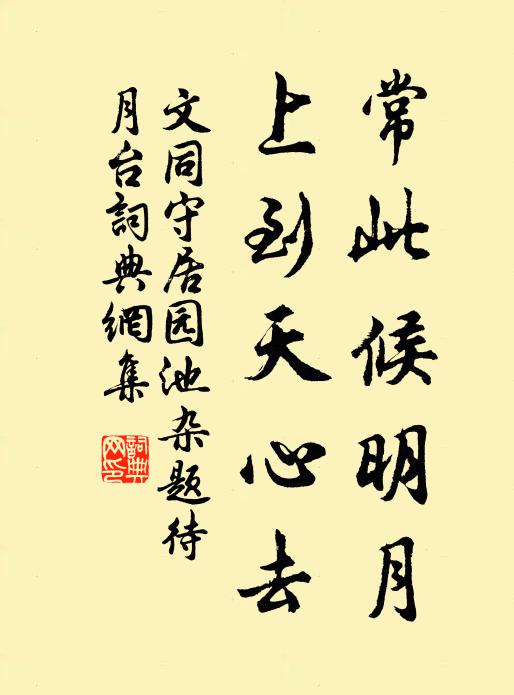 常此候明月
上到天心去
文同守居园池杂题待
月台詞典網集
詞典网印